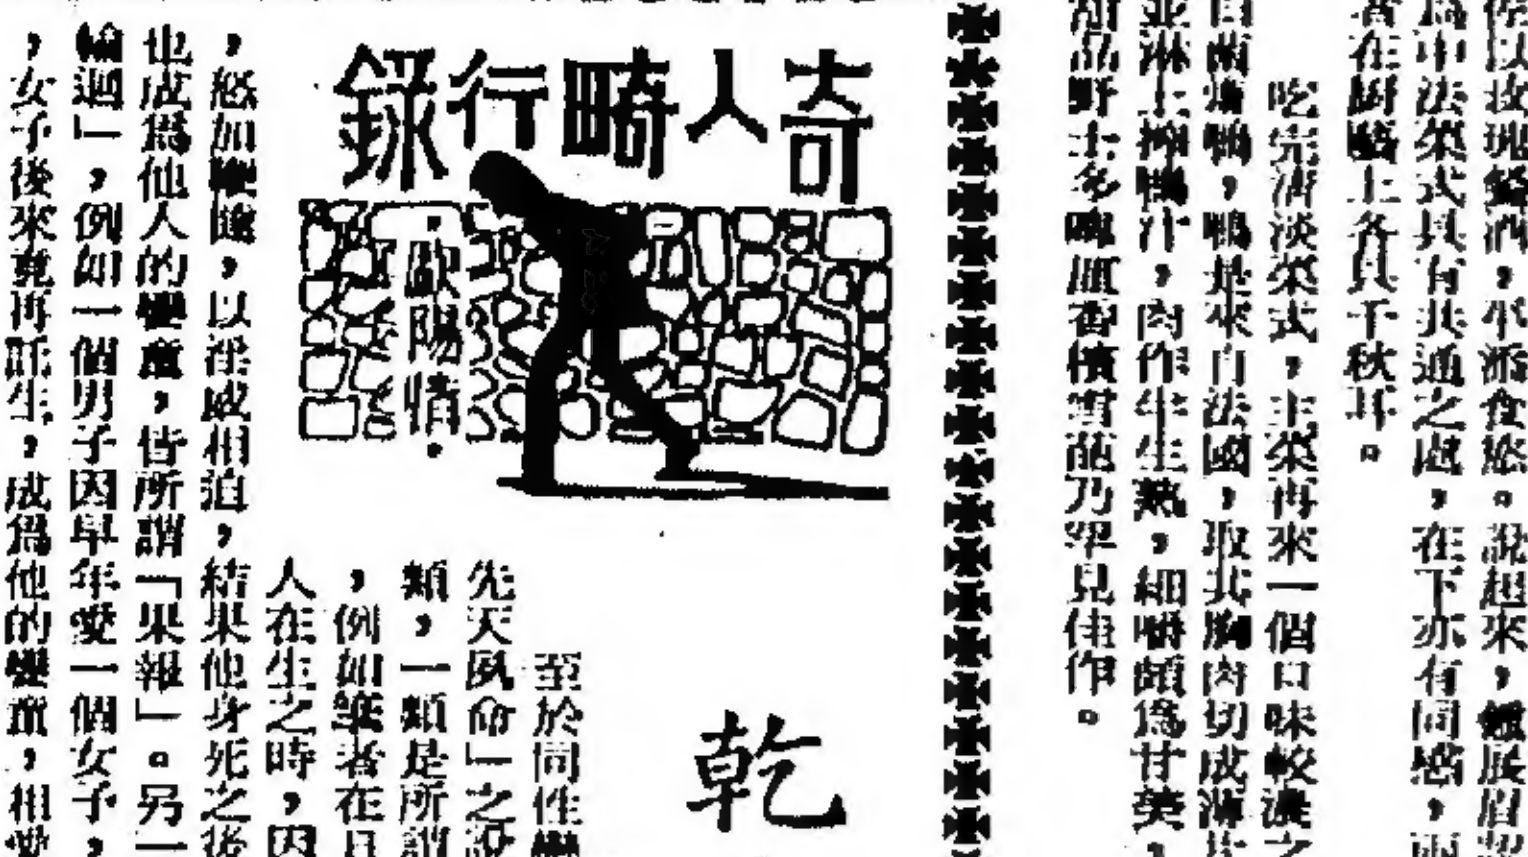 為中法菜式具有共通之處，在下亦有同感，
者在厨藝上各具千秋耳。
吃完清淡菜式，主菜再來一個口味較濃之
鴨，鴨是來自法國，取其胸肉切成薄片
並淋上鴨汁，肉作半生熟，細嚼頗爲甘美，
甜品野士多啤梨雪葩乃罕見佳作。
奇人畸行錄
·歐陽情·
乾
至於同性戀
先天夙命」之說
類，一類是所謂
，例如筆者在
人在生之時，因
，怒加鞭撻，以淫威相迫，結果他身死之後
也成爲他人的孌童，皆所謂「果報」。另一
輪迴」，例如一個男子因早年愛一個女子，
，女子後來竟再託生，成爲他的孌童，相愛